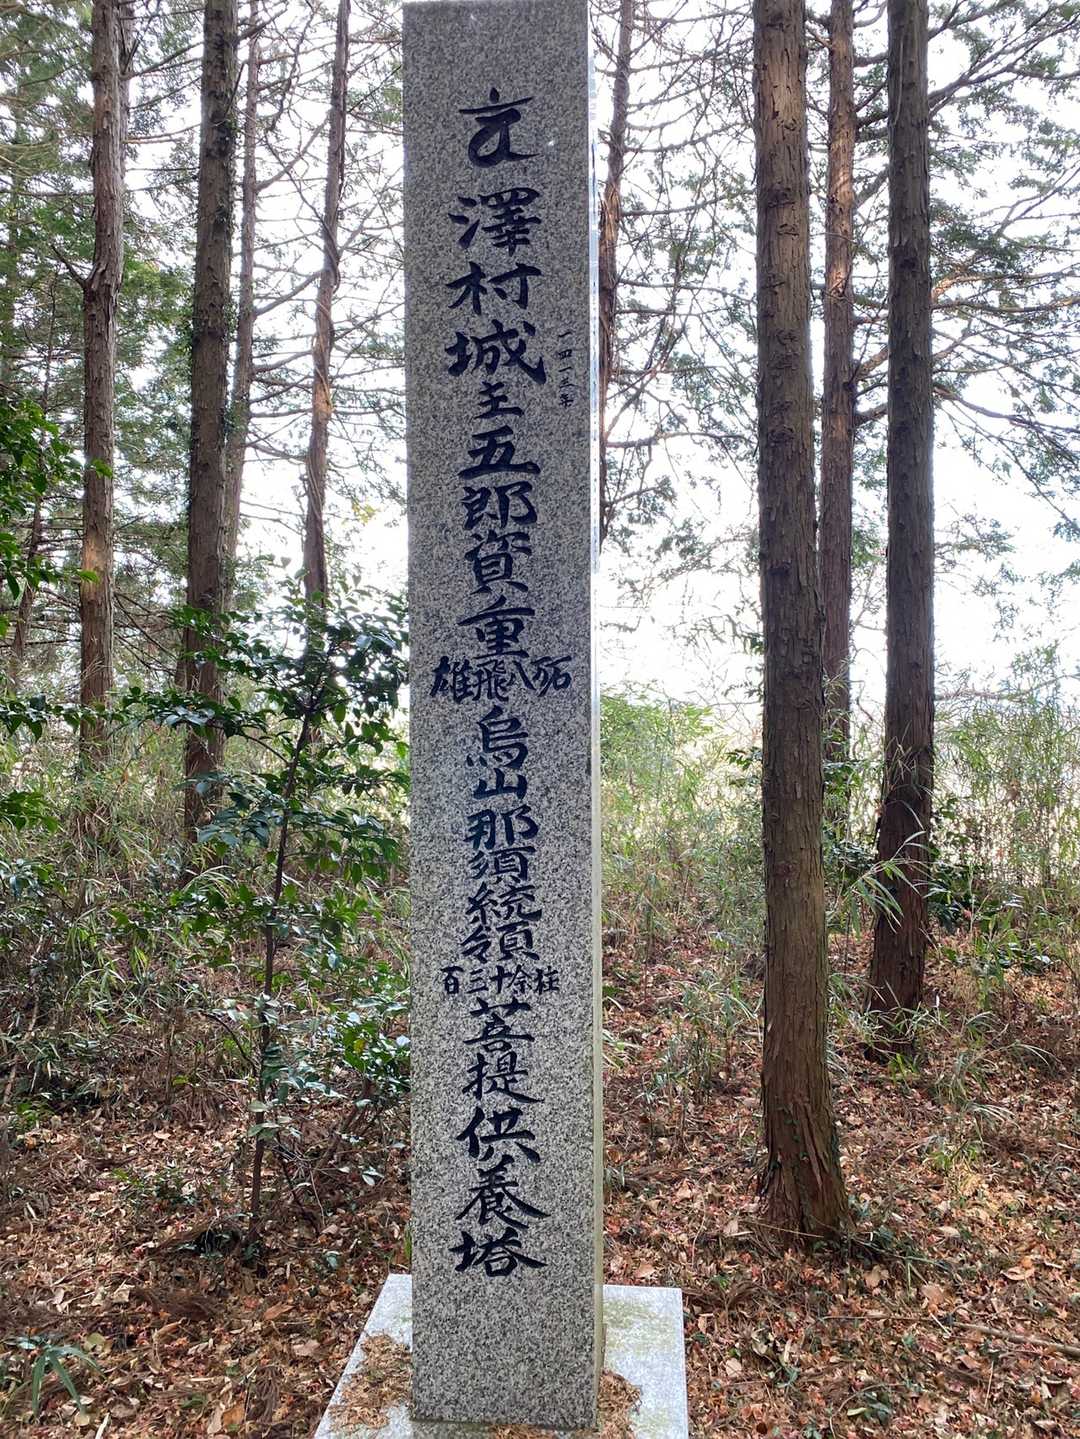 一四一三年
澤村城主五郎資重
雄飛八
烏山那須統領
百三十余柱
菩提供養塔